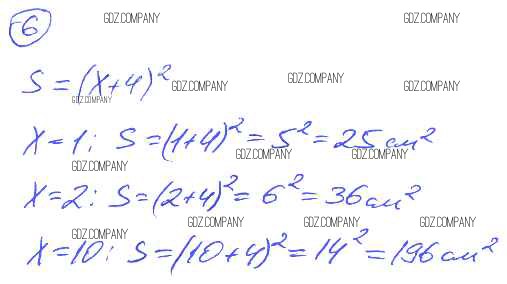 6 GDZ.COMPANY GDZ.COMPANY
S = (x+4)² GDZ.COMPANY GDZ.COMPANY GDZ.COMPANY
GDZ.COMPANY
x=1; S=(1+4)²=5²=25см²
GDZ.COMPANY GDZ.COMPANY GDZ.COMPANY
x=2: S=(2+4)²=6²=36см²
GDZ.COMPANY GDZ.COMPANY GDZ.COMPANY GDZ.COMPANY
x=10; S=(10+4)²=14²=196см²